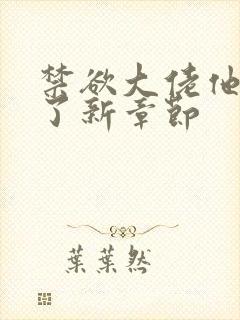 禁欲大佬他
了新章節
葉葉然